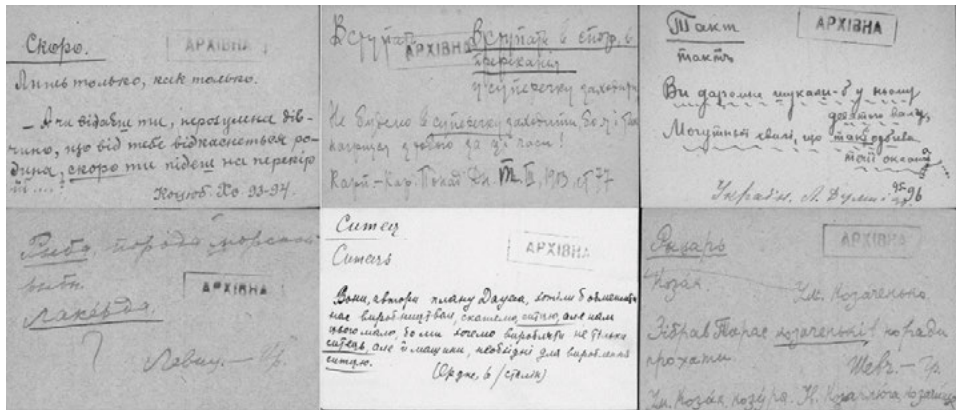 Скоро.
АРХІВНА
Лишь только, как только.
— А чи відаєш ти, нерозумна дів-
чино, що від тебе відкаснеться ро-
дина, скоро ти підеш на перекір
їй ....?
Коцюб. Хо 93-94.
Вступать
АРХІВНА
Вступать в спор, в
пререкания
у суперечку заходити
Не будемо в суперечку заходити, бо й так
Т. II, 1903, ст 77
Такт
АРХІВНА
тактъ
Ви даром шукали-б у ньому
Могутньої хвилі, що такт одбива
Україн. Л. Думи 95-96
Рыба, порода морской
рыбы.
АРХІВНА
Лакерда.
?
Левиц. — Пр.
Ситец
Ситець
АРХІВНА
Вони, автори плану Дауеса, хотіли б обмежити
нас виробництвом, скажемо, ситцю, але нам
цього мало, бо ми хочемо виробляти не тільки
ситець, але й машини, необхідні для вироблення
ситцю.
Рыцарь
АРХІВНА
Козак
Ум. Козаченько
Зібрав Тарас козаченьків поради
прохати.
Шевч — Гр.
Ум. Козак, козура.